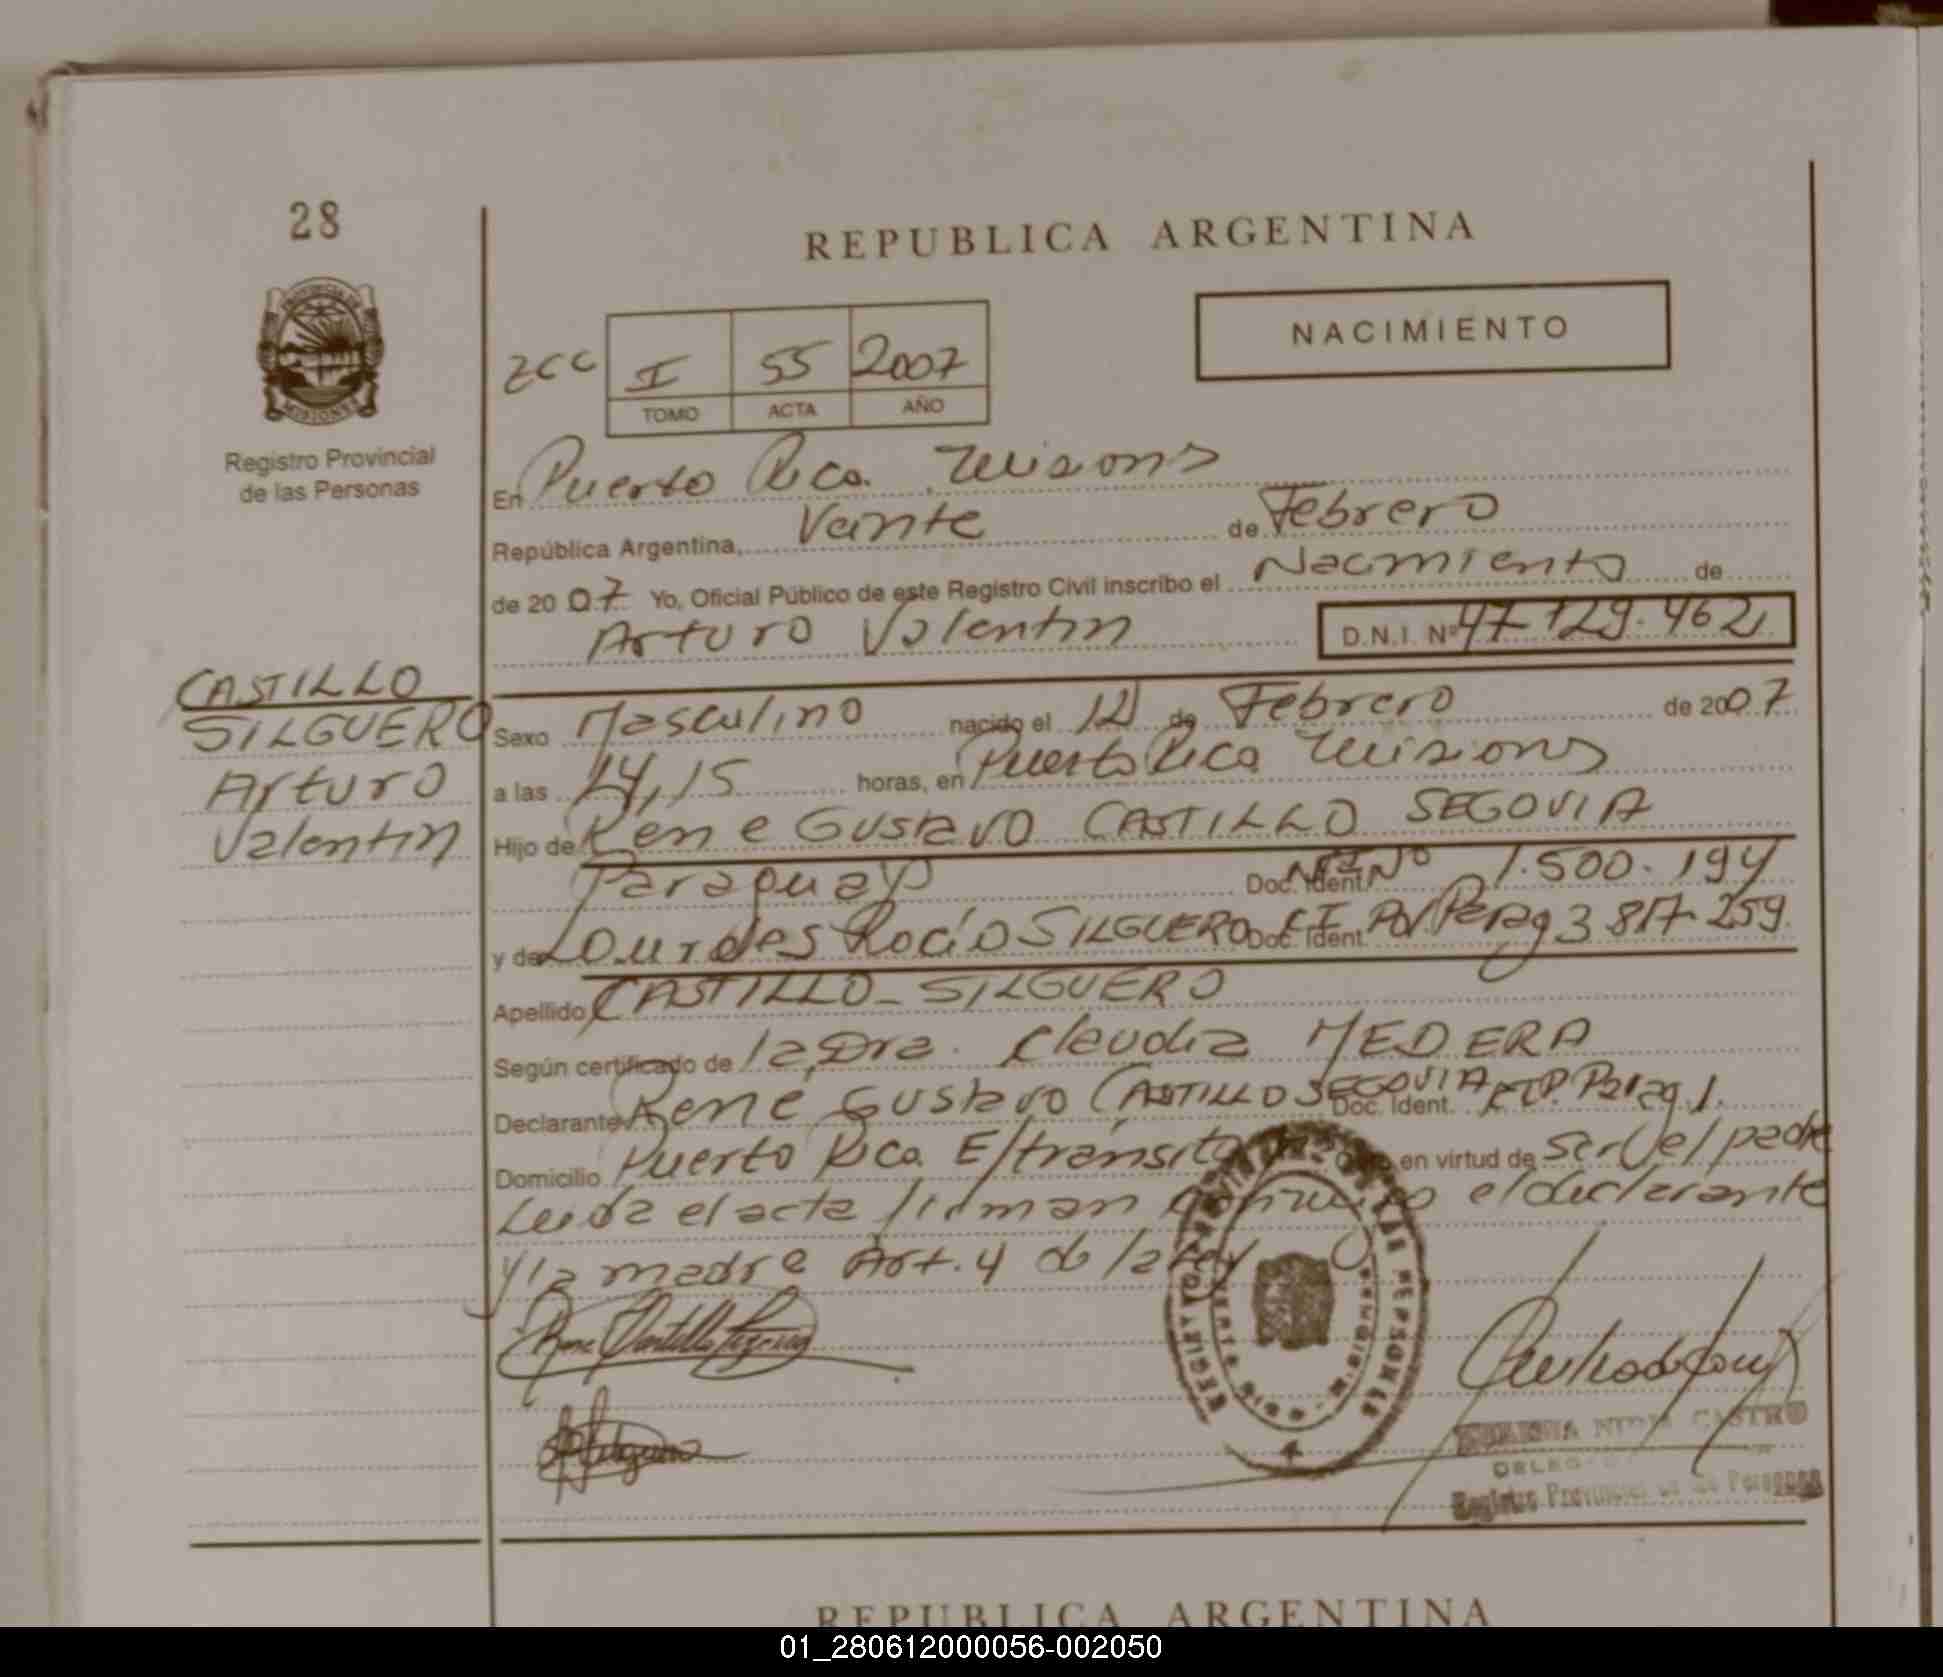 28
REPUBLICA ARGENTINA
PROVINCIA DE
MISIONES
Registro Provincial
de las Personas
NACIMIENTO
I 55 2007
TOMO ACTA AÑO
En Puerto Rico. Misions
República Argentina, Veinte de Febrero
de 2007 Yo, Oficial Público de este Registro Civil inscribo el Nacimiento de
Arturo Valentin D.N.I. Nº 47.129.462
CASTILLO
SILGUERO
Arturo
Valentin
Sexo Masculino nacido el 12 de Febrero de 2007
a las 14,15 horas, en Puerto Rico Misions
Hijo de Rene Gustavo CASTILLO SEGOVIA
Paraguay Doc. Ident. Nº 1.500.194
y de Lourdes Rocío SILGUERO Doc. Ident. C.I. Pol. Parag 3.817.259
Apellido CASTILLO - SILGUERO
Según certificado de la Dra. Claudia MEDERA
Declarante René Gustavo CASTILLO SEGOVIA Doc. Ident. Parag 1.
Domicilio Puerto Rico E/tránsito en virtud de ser el padre
Leida el acta firman conmigo el declarante
y la madre Art. 4 de la Ley
CASTRO
Registro Provincial de las Personas
REPUBLICA ARGENTINA
01_280612000056-002050